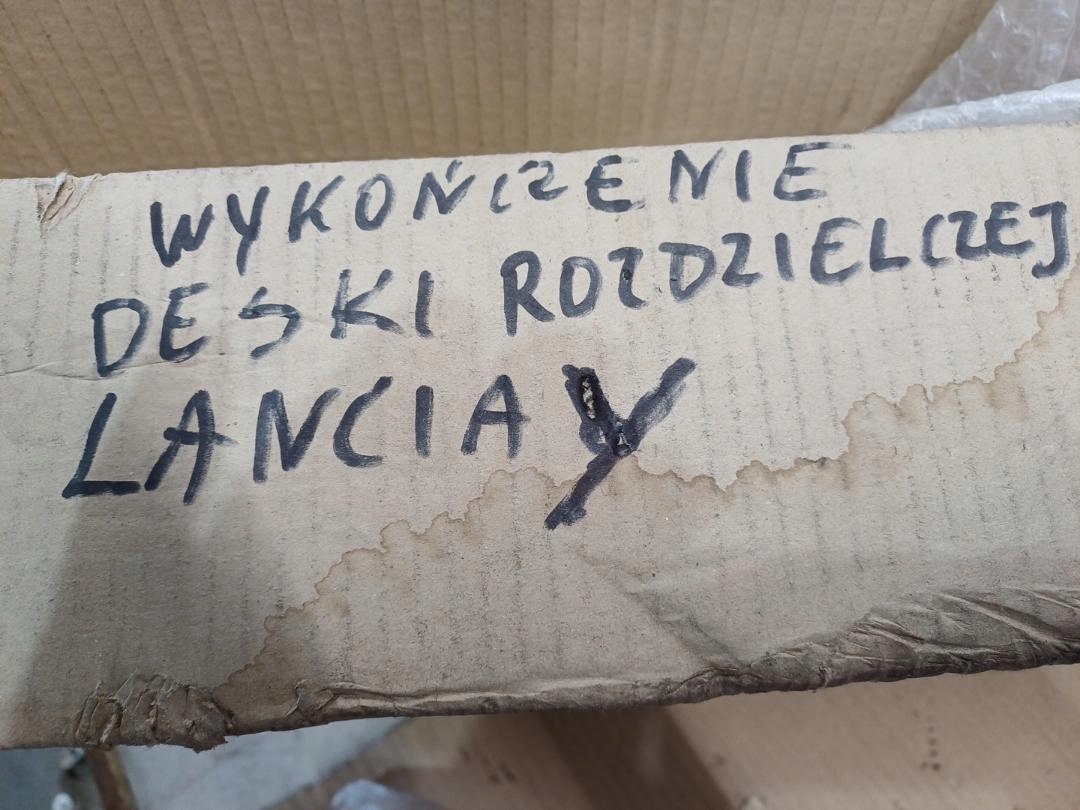 WYKOŃCZENIE
DESKI ROZDZIELCZEJ
LANCIA Y